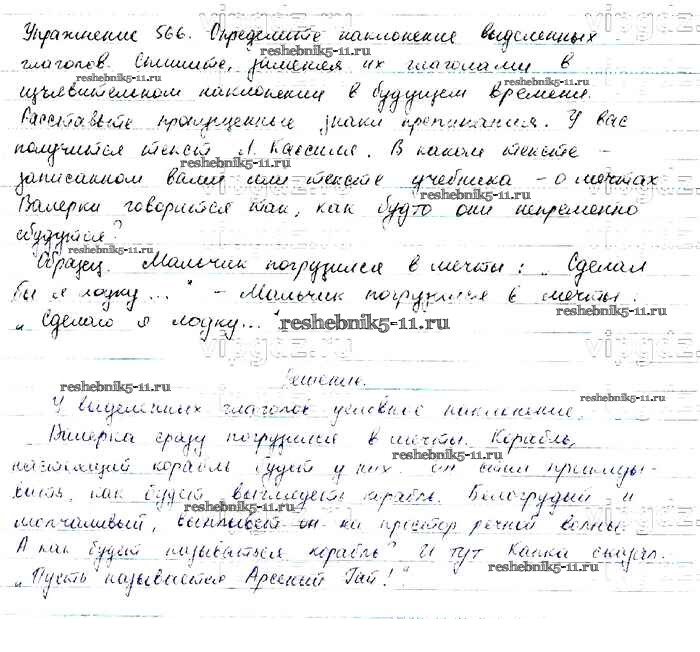 Упражнение 566. Определите наклонение выделенных
reshebnik5-11.ru
глаголов. Спишите, заменяя их глаголами в
reshebnik5-11.ru
reshebnik5-11.ru
изъявительном наклонении в будущем времени.
Расставьте пропущенные знаки препинания. У вас
получится текст Л. Кассиля. В каком тексте –
reshebnik5-11.ru
записанном вами или тексте учебника – о мечтах
Валерки говорится так, как будто они непременно
сбудутся?
reshebnik5-11.ru
Образец. Мальчик погрузился в мечты: „Сделал
бы я лодку..." – Мальчик погрузился в мечты:
reshebnik5-11.ru
„Сделаю я лодку..."
reshebnik5-11.ru
Решение.
reshebnik5-11.ru
reshebnik5-11.ru
У выделенных глаголов условное наклонение.
Валерка сразу погрузился в мечты. Корабль,
reshebnik5-11.ru
настоящий корабль будет у них. Он стал прикиды-
вать, как будет выглядеть корабль. Белогрудый и
reshebnik5-11.ru
молчаливый, выплывет он на простор речной волны.
А как будет называться корабль? И тут Капка сказал:
reshebnik5-11.ru
„Пусть называется Арсений Гай!"